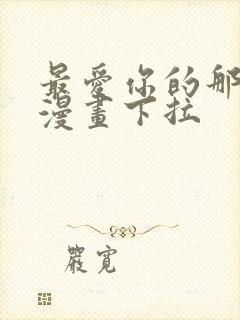 最愛你的那
漫畫下拉
嚴寬